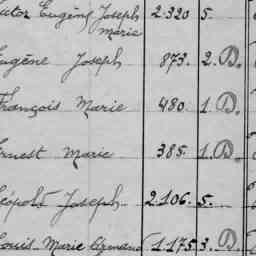 ictor Eugène Joseph 2.320 5.
Marie
Eugène Joseph 873. 2. D.
François Marie 480 1. D.
Ernest Marie 385. 1. D.
Léopold Joseph 2.106. 5.
Louis Marie Armand 1.175 3. D.